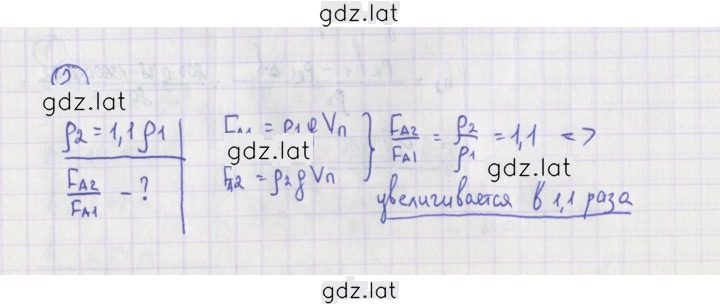 gdz.lat
2
gdz.lat
ρ2 = 1,1 ρ1
F_A2/F_A1 - ?
F_A1 = ρ1 g Vп
gdz.lat
F_A2 = ρ2 g Vп
F_A2/F_A1 = ρ2/ρ1 = 1,1 <=>
gdz.lat
увеличивается в 1,1 раза
gdz.lat